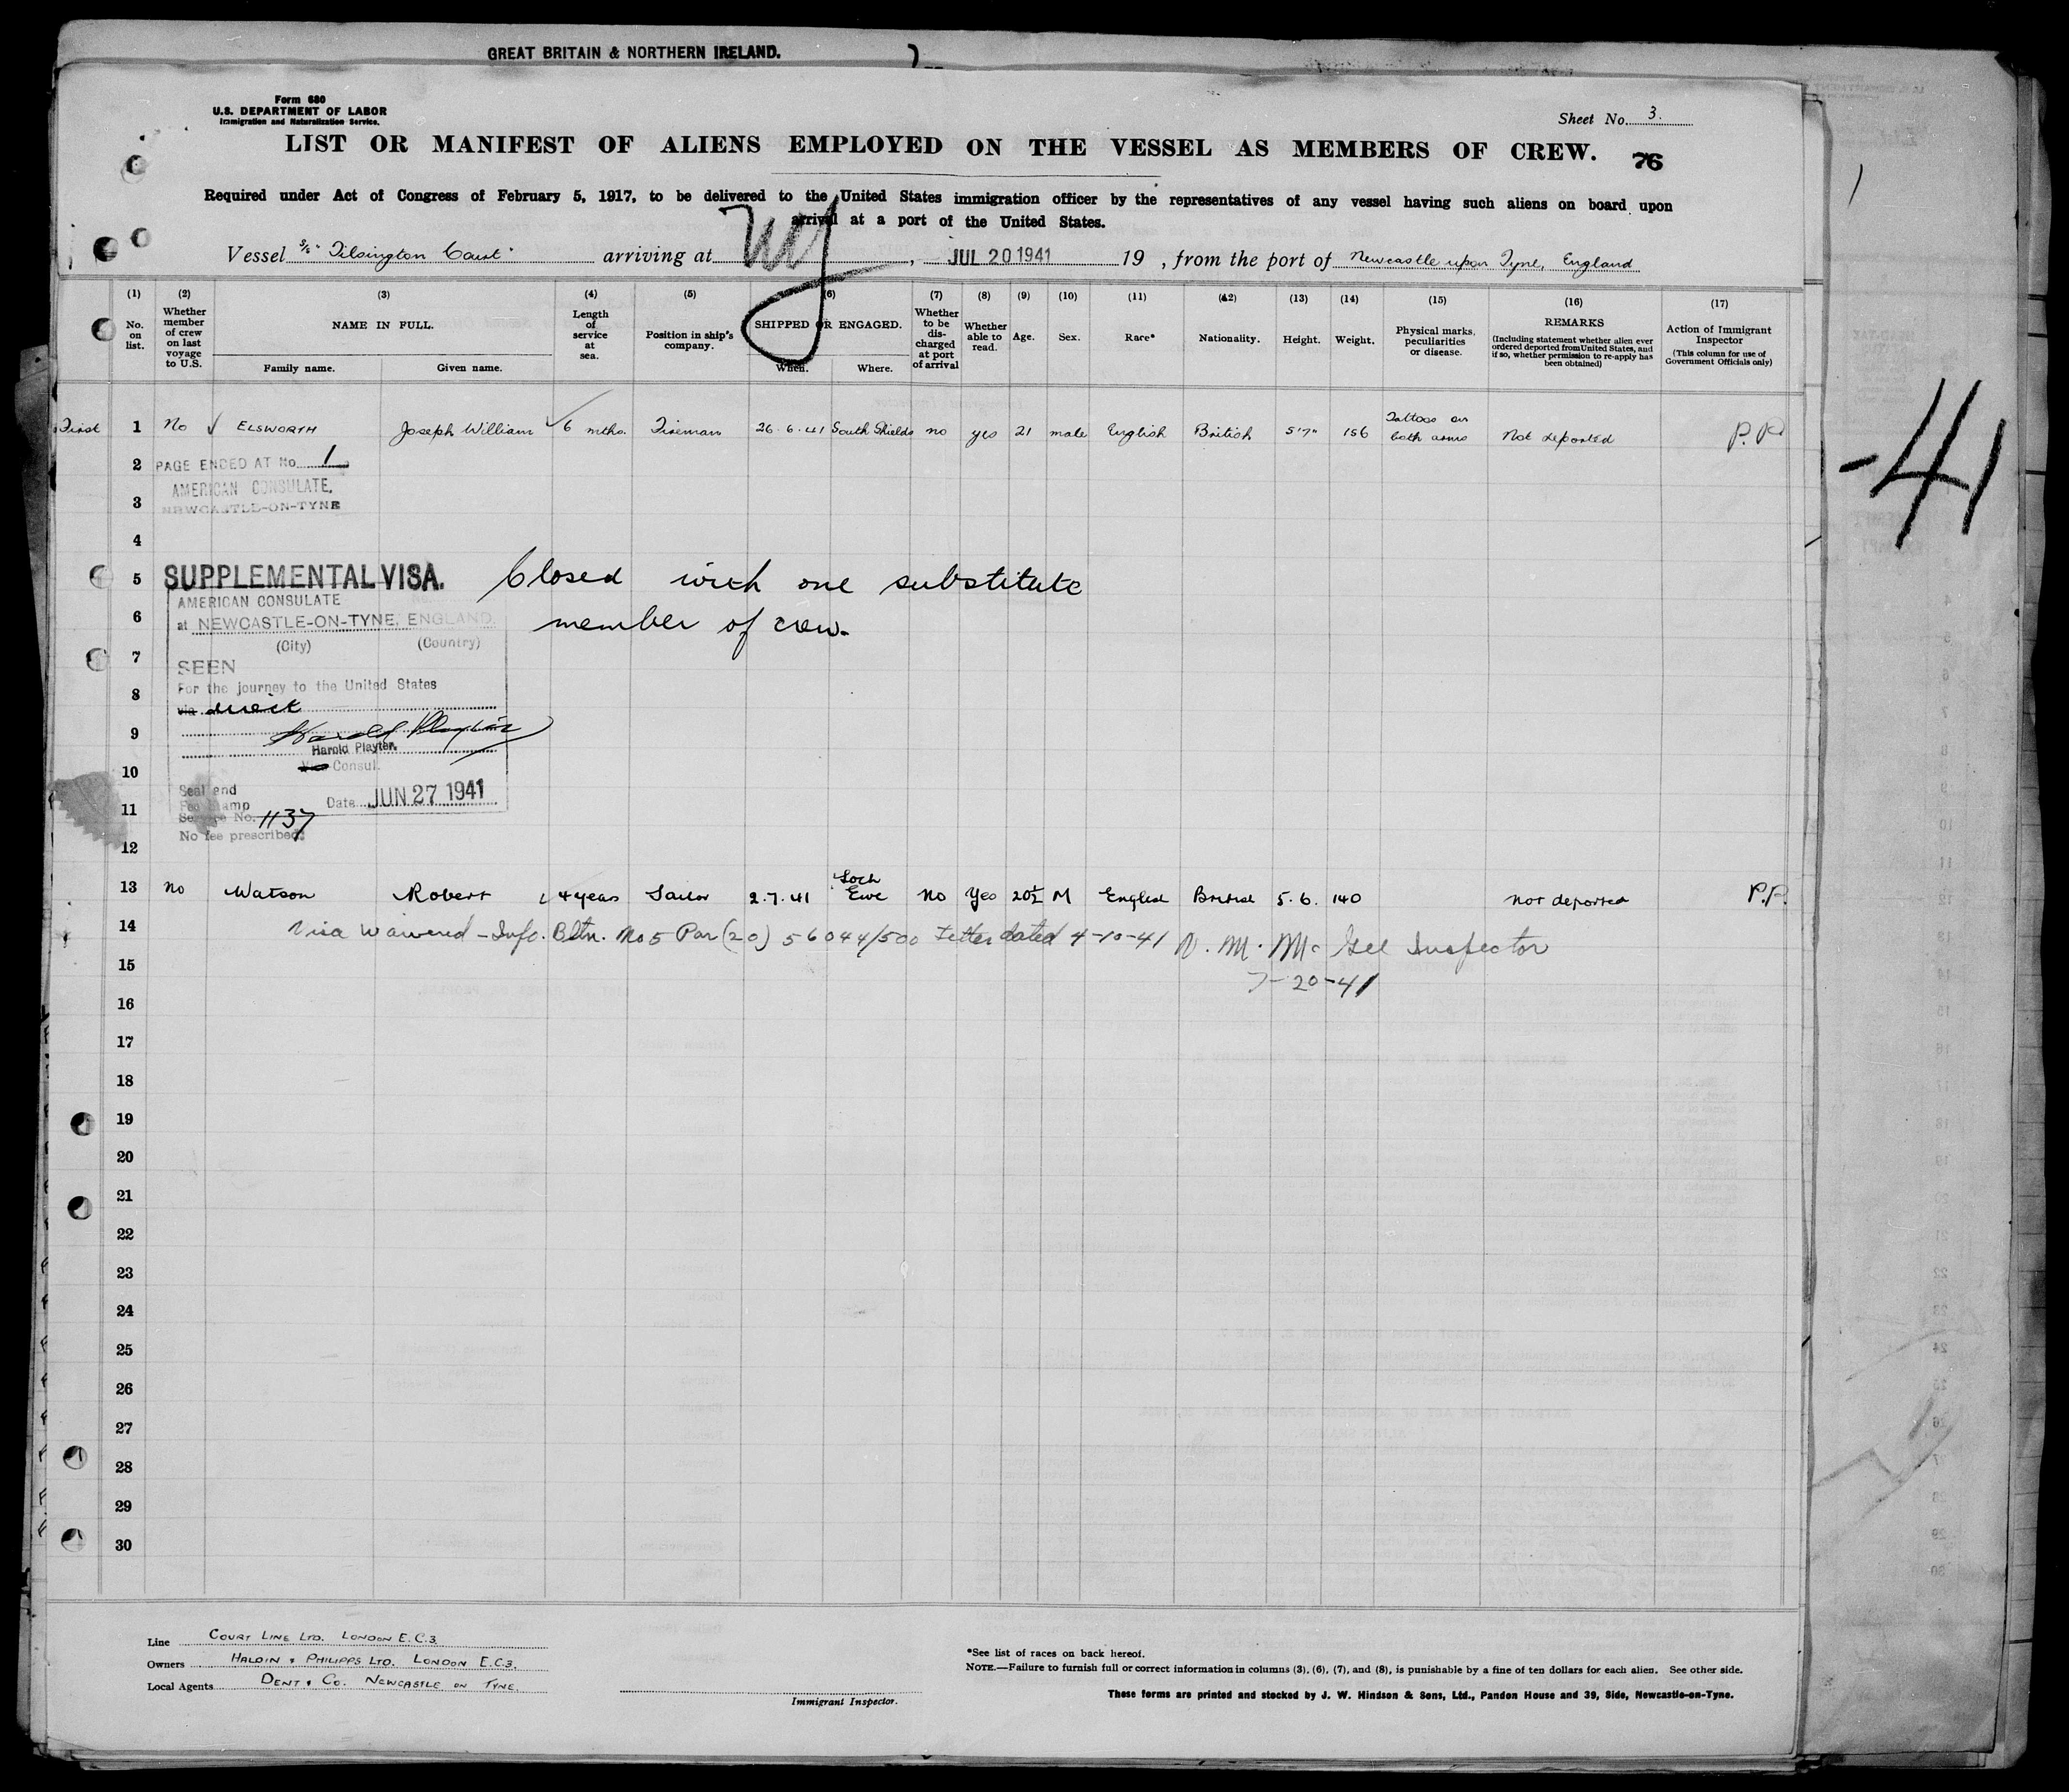 GREAT BRITAIN & NORTHERN IRELAND.
Form 680
U.S. DEPARTMENT OF LABOR
Immigration and Naturalization Service.
Sheet No. 3.
LIST OR MANIFEST OF ALIENS EMPLOYED ON THE VESSEL AS MEMBERS OF CREW. 76
Required under Act of Congress of February 5, 1917, to be delivered to the United States immigration officer by the representatives of any vessel having such aliens on board upon
arrival at a port of the United States.
Vessel S/S "Tilsington Court" arriving at NY, JUL 20 1941 19 , from the port of Newcastle upon Tyne, England
(1) No. on list.
(2) Whether member of crew on last voyage to U.S.
(3) NAME IN FULL. Family name. Given name.
(4) Length of service at sea.
(5) Position in ship's company.
(6) SHIPPED OR ENGAGED. When. Where.
(7) Whether to be discharged at port of arrival
(8) Whether able to read.
(9) Age.
(10) Sex.
(11) Race*
(12) Nationality.
(13) Height.
(14) Weight.
(15) Physical marks, peculiarities or disease.
(16) REMARKS (Including statement whether alien ever ordered deported from United States, and if so, whether permission to re-apply has been obtained)
(17) Action of Immigrant Inspector (This column for use of Government Officials only)
First 1 No ✓ ELSWORTH Joseph William ✓ 6 mths. Fireman 26.6.41 South Shields no yes 21 male English British 5'7" 156 Tattoos on both arms Not deported P.P.
2 PAGE ENDED AT No. 1
AMERICAN CONSULATE,
3 NEWCASTLE-ON-TYNE
4
5 SUPPLEMENTAL VISA. Closed with one substitute
AMERICAN CONSULATE
6 at NEWCASTLE-ON-TYNE, ENGLAND. member of crew.
(City) (Country)
7
SEEN
8 For the journey to the United States
via direct
9 Harold Playter
Harold Playter.
Vice Consul.
10
Seal and
Fee Stamp Date JUN 27 1941
11
Service No. 1137
No fee prescribed.
12
13 no Watson Robert 4 years Sailor 2.7.41 Loch Ewe No Yes 20½ M English British 5.6. 140 not deported P.P.
14 Visa Waivered - Info. Bltn. No 5 Par (20) 56044/500 Letter dated 4-10-41 N. M. McGee Inspector
15 7-20-41
16
17
18
19
20
21
22
23
24
25
26
27
28
29
30
-41
Line COURT LINE LTD. LONDON E.C.3.
Owners HALDIN & PHILIPPS LTD. LONDON E.C.3.
Local Agents DENT & CO. NEWCASTLE ON TYNE.
Immigrant Inspector.
*See list of races on back hereof.
NOTE.—Failure to furnish full or correct information in columns (3), (6), (7), and (8), is punishable by a fine of ten dollars for each alien. See other side.
These forms are printed and stocked by J. W. Hindson & Sons, Ltd., Pandon House and 39, Side, Newcastle-on-Tyne.